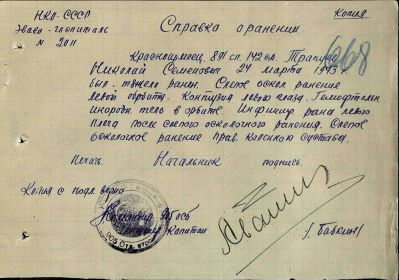 НКО-СССР
Эвако-госпиталь
№ 2011
Копия
Справка о ранении.
268
Красноармеец 891 сп. 142 сд.
Николай Семенович 24 марта 1943 г.
был тяжело ранен. Слепое оскол ранение
левой орбиты. Контузия левого глаза. Гемофтальм
инородн. тело в орбите. рана левого
плеча после слепого осколочного ранения. Слепое
осколочное ранение прав. коленного сустава.
Печать. Начальник подпись.
Копия с подл. верна
Капитан